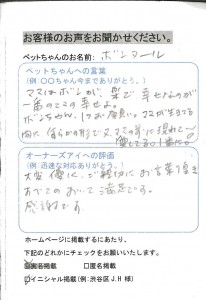 お客様のお声をお聞かせください。
ペットちゃんのお名前: ボンマール
ペットちゃんへの言葉
(例:〇〇ちゃん今までありがとう。)
ママはボンが、楽で幸せなのが
一番のママの幸せよ。
ボンちゃん、1つお願い。ママが生きてる
内に何らかの形で又ママの所に現れて
オーナーズアイへの評価
(例 迅速な対応ありがとう。)
大変優しく、ご親切にお言葉を頂き
すべてのおいて満足です。
感謝です
ホームページに掲載するにあたり、
下記のどれかにチェックをお願いいたします。
実名掲載 □匿名掲載
イニシャル掲載(例:渋谷区J.H 様)